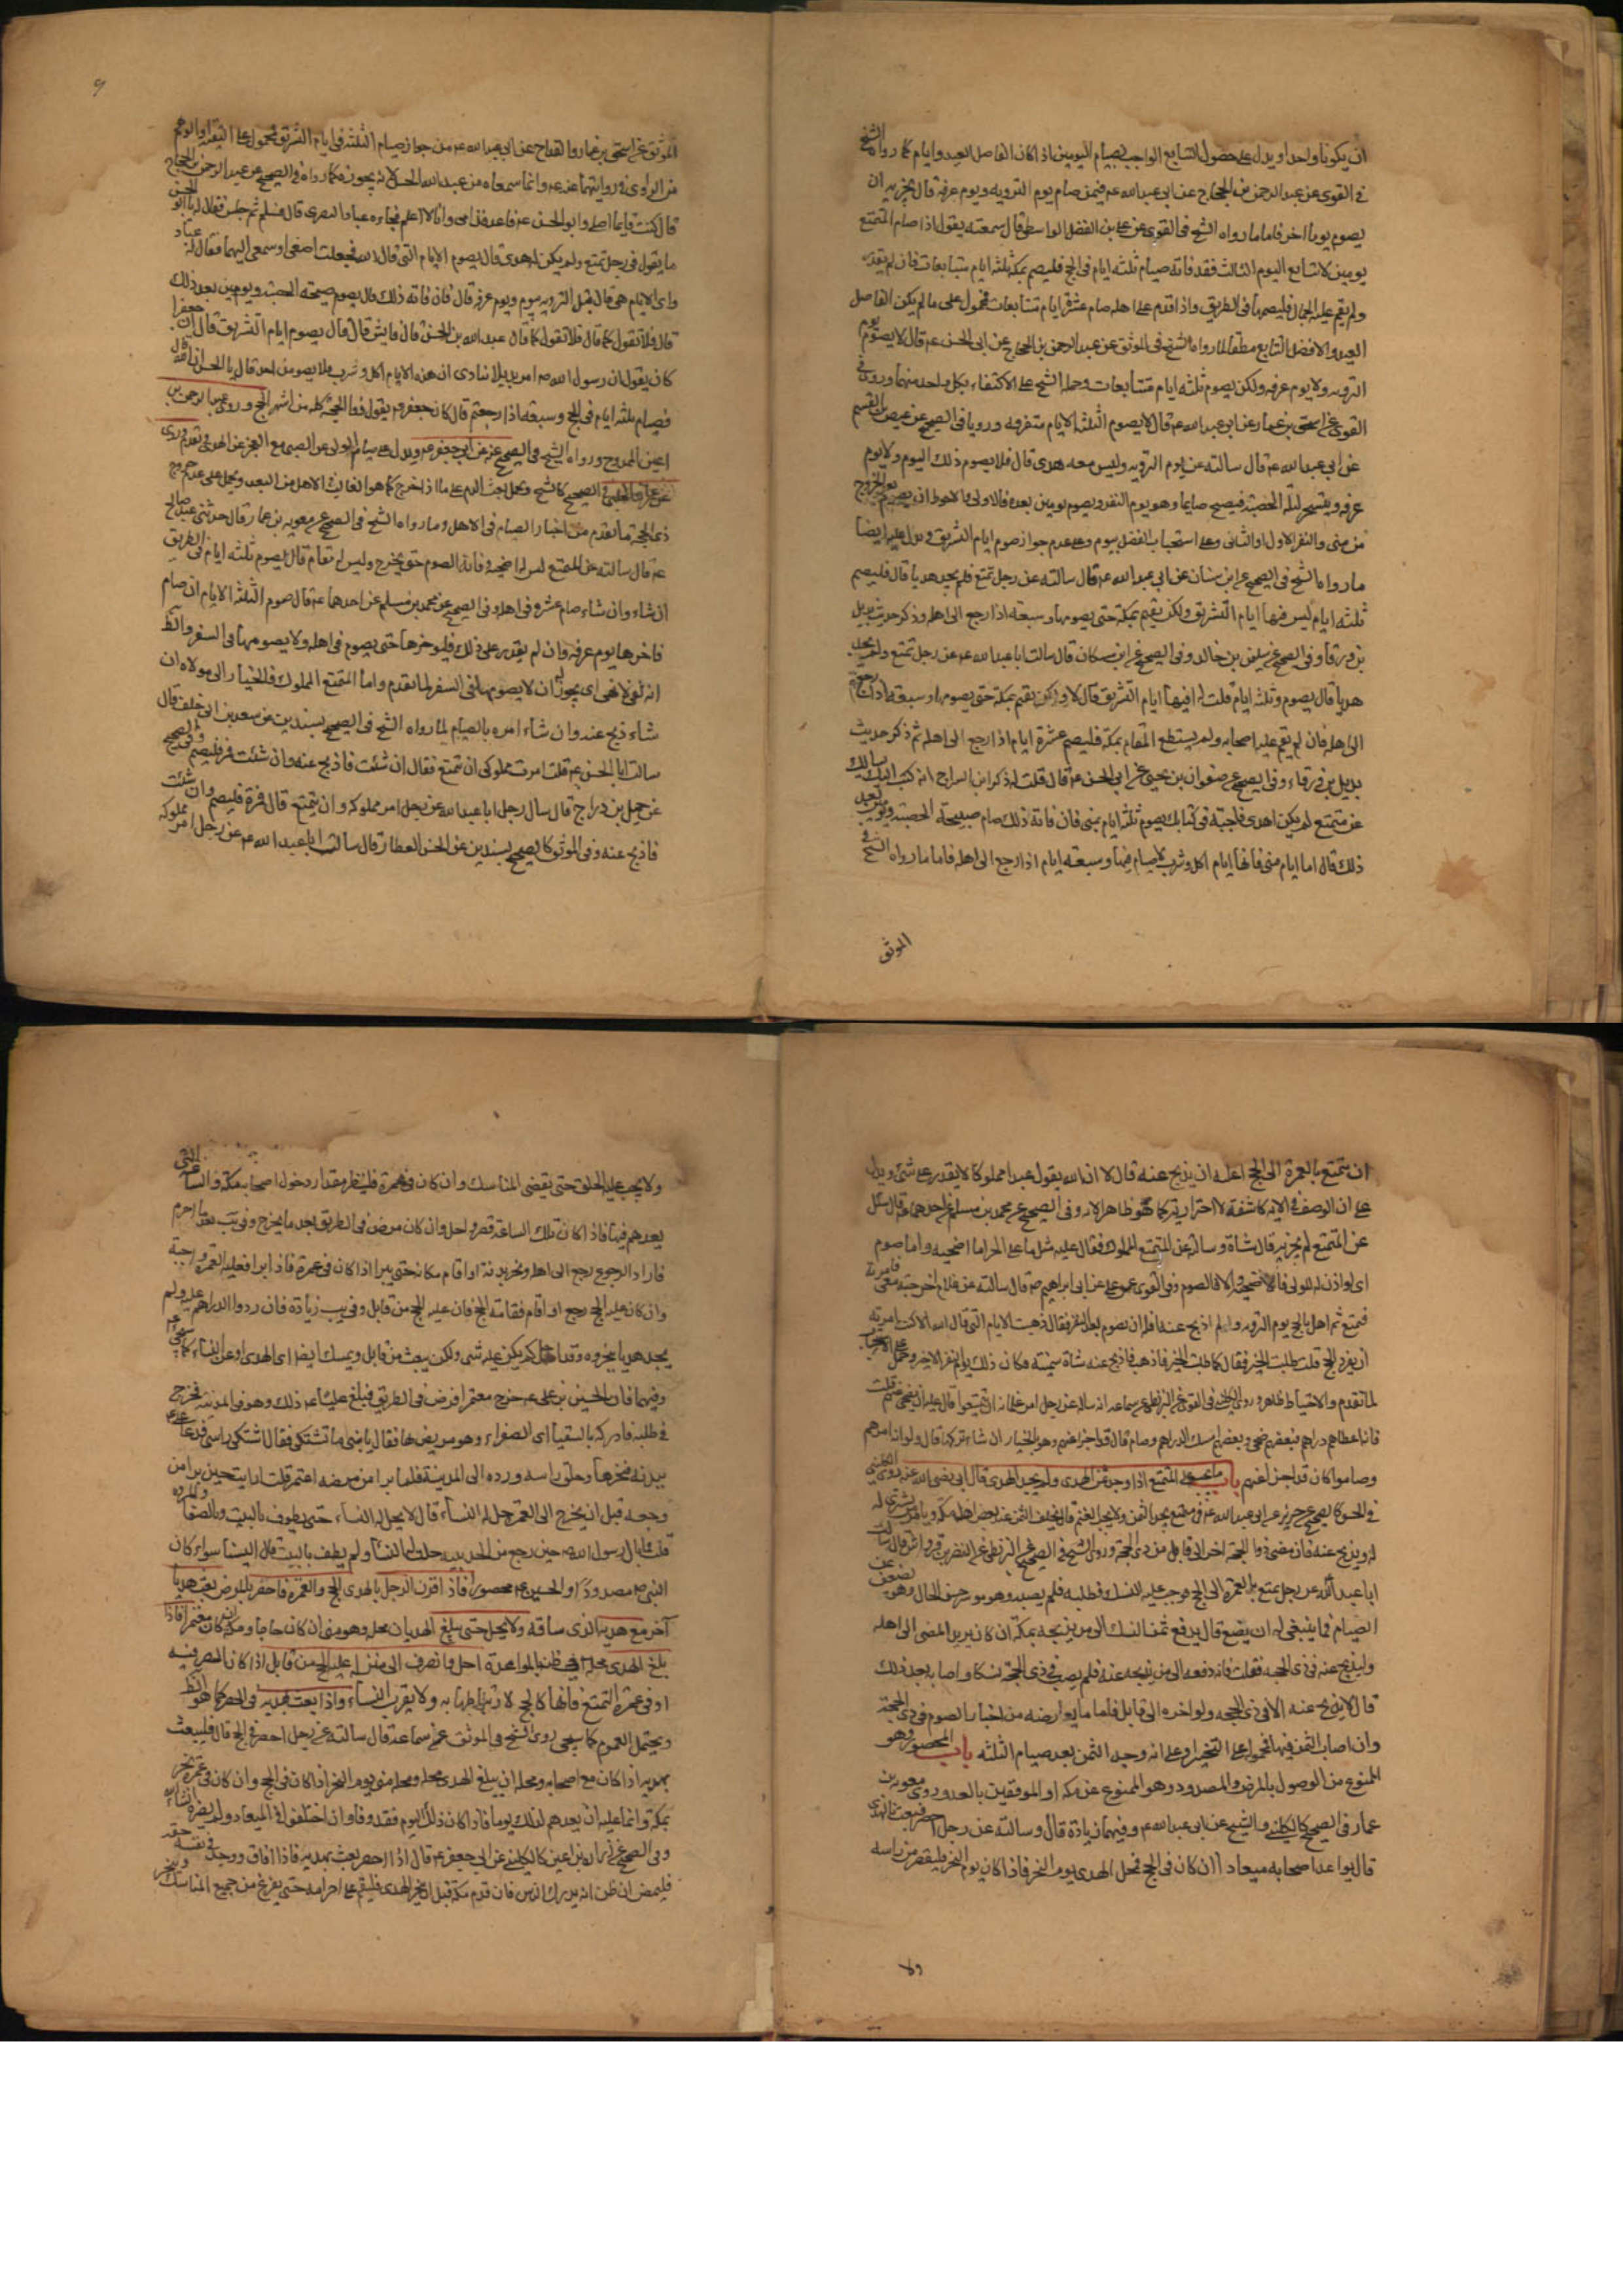 ان يكون يوما واحدا ويدل على حصول التتابع الواجب بصيام اليومين اذا كان الفاصل العيد وايام كما رواه الشيخ
في القوى عن عبد الرحمن بن الحجاج عن ابي عبد الله عم فيمن صام يوم التروية ويوم عرفة قال يجزيه ان
يصوم يوما اخر فاما ما رواه الشيخ في القوى عن علي بن الفضل الواسطي قال سمعته يقول اذا صام المتمتع
يومين لا يتابع اليوم الثالث فقد فاته صيام ثلثة ايام في الحج فليصم بمكة ثلثة ايام متتابعات فان لم يقدر
ولم يقم عليه الجمال فليصمها في الطريق واذا قدم على اهله صام عشرة ايام متتابعات فمحمول على ما لم يكن الفاصل
العيد والافضل التتابع مطلقا لما رواه الشيخ في الموثق عن عبد الرحمن بن الحجاج عن ابي الحسن عم قال لا يصوم يوم
التروية ولا يوم عرفة ولكن يصوم ثلثة ايام متتابعات وحمله الشيخ على الاكتفاء بكل واحد منهما وروى في
القوى عن اسحق بن عمار عن ابي عبد الله عم قال لا يصوم الثلثة الايام متفرقة ورويا في الصحيح عن عيص بن القسم
عن ابي عبد الله عم قال سالته عن يوم التروية وليس معه هدى قال فلا يصوم ذلك اليوم ولا يوم
عرفة ويتسحر ليلة الحصبة فيصبح صايما وهو يوم النفر ويصوم يومين بعده فالاولى والاحوط ان يصوم بعد الخروج
من منى والنفر الاول او الثاني وعلى استحباب الفصل بيوم وعلى عدم جواز صوم ايام التشريق ويدل عليه ايضا
ما رواه الشيخ في الصحيح عن ابن سنان عن ابي عبد الله عم قال سالته عن رجل تمتع فلم يجد هديا قال فليصم
ثلثة ايام ليس فيها ايام التشريق ولكن يقيم بمكة حتى يصومها وسبعة اذا رجع الى اهله وذكر حديث بديل
بن ورقا وفي الصحيح عن سليمن بن خالد وفي الصحيح عن ابن مسكان قال سالت ابا عبد الله عم عن رجل تمتع ولم يجد
هديا قال يصوم ثلثة ايام قلت له افيها ايام التشريق قال لا ولكن يقيم بمكة حتى يصومها وسبعة اذا رجع
الى اهله فان لم يقم عليه اصحابه ولم يستطع المقام بمكة فليصم عشرة ايام اذا رجع الى اهله ثم ذكر حديث
بديل بن ورقاء وفي الصحيح عن صفوان بن يحيى عن ابي الحسن عم قال قلت له ذكر ابن السراج انه كتب اليك يسالك
عن متمتع لم يكن له هدى فاجبته في كتابك يصوم ثلثة ايام بمنى فان فاته ذلك صام صبيحة الحصبة ويومين بعد
ذلك قال اما ايام منى فانها ايام اكل وشرب لا صيام فيها وسبعة ايام اذا رجع الى اهله فاما ما رواه الشيخ في
الموثق
٩
الموثق عن اسحق بن عمار والقداح عن ابي عبد الله عم من جواز صيام الثلثة في ايام التشريق فمحمول على التقية او الوهم
من الراوى في روايتهما عنه عم وانما سمعاه من عبد الله الحسن لانه يجوزه كما رواه في الصحيح عن عبد الرحمن بن الحجاج
قال كنت قايما اصلى وابو الحسن عم قاعد قدامى وانا لا اعلم فجاءه عباد البصرى قال فسلم ثم جلس فقال له يا ابا الحسن
ما تقول في رجل تمتع ولم يكن له هدى قال يصوم الايام التي قال الله فجعلت اصغى وسمعي اليهما فقال له عباد
واى الايام هي قال قبل التروية بيوم ويوم عرفة قال فان فاته ذلك قال يصوم صبيحة الحصبة ويومين بعد ذلك
قال فلا تقول كما قال فلا تقول كما قال عبد الله بن الحسن قال فايش قال قال يصوم ايام التشريق قال ان جعفرا
كان يقول ان رسول الله صم امر بديلا ينادى ان هذه الايام اكل وشرب فلا يصومن احد قال يا ابا الحسن ان الله قال
فصيام ثلثة ايام في الحج وسبعة اذا رجعتم قال كان جعفر عم يقول ذو الحجة كله من اشهر الحج وروى عبد الرحمن بن
اعين الممدوح ورواه الشيخ في الصحيح عنه عن ابي جعفر عم ويدل على صيام الولى عن الصبى مع العجز عن الهدى وتقدم وروى
عن عمران الحلبى في الصحيح كالشيخ ويحمل بعث الدم على ما اذا خرج كما هو الغالب الاهل من البعد ويحمل على عدم خروج
ذى الحجة ما تقدم من اخبار الصيام في الاهل وما رواه الشيخ في الصحيح عن معوية بن عمار قال حدثنى عبد صالح
عم قال سالته عن المتمتع ليس له اضحية وفاته الصوم حتى يخرج وليس له مقام قال يصوم ثلثة ايام في الطريق
ان شاء وان شاء صام عشرة في اهله وفي الصحيح عن محمد بن مسلم عن احدهما عم قال صوم الثلثة الايام ان صام
فاخرها يوم عرفة وان لم يقدر على ذلك فليوخرها حتى يصوم في اهله ولا يصومها في السفر والظ
انه نفى لا نهى اى يجوز له ان لا يصومها في السفر لما تقدم واما المتمتع المملوك فالخيار الى مولاه ان
شاء ذبح عنه وان شاء امره بالصيام لما رواه الشيخ في الصحيح بسندين عن سعد بن ابى خلف قال
سالت ابا الحسن عم قلت امرت مملوكى ان تمتع فقال ان شئت فاذبح عنه وان شئت فمره فليصم وفي الصحيح
عن جميل بن دراج قال سال رجل ابا عبد الله عن رجل امر مملوكه ان يتمتع قال فمره فليصم وان شئت
فاذبح عنه وفي الموثق كالصحيح بسندين عن الحسن العطار قال سالت ابا عبد الله عم عن رجل امر مملوكه
ان يتمتع بالعمرة الى الحج اعليه ان يذبح عنه قال لا ان الله يقول عبدا مملوكا لا يقدر على شئ ويدل
على ان الوصف في الاية كاشفة لا احترازية كما هو ظاهر الاية وفي الصحيح عن محمد بن مسلم عن احدهما عم قال سئل
عن المتمتع لم يجزيه قال شاة وسالته عن المتمتع المملوك فقال عليه مثل ما على الحر اما اضحية واما صوم
فتمتع ثم اهل بالحج يوم التروية ولم اذبح عنه افله ان يصوم بعد النفر فقال ذهبت الايام التي قال الله الا كنت امرته
ان يفرد الحج قلت طلبت الخير فقال كما طلبت الخير فاذهب فاذبح عنه شاة سمينة وكان ذلك يوم النفر الاخير
فانه اعطاهم دراهم فبعضهم ضحى وبعضهم امسك الدراهم وصام قال قد اجزا عنهم وهو بالخيار ان شاء تركها قال ولو انه امرهم
وصاموا كان قد اجزا عنهم باب ما يجب على المتمتع اذا وجد ثمن الهدى ولم يجد الهدى قال ابى رضى الله عنه
في الحسن كالصحيح عن حريز عن ابى عبد الله عم في متمتع يجد الثمن ولا يجد الغنم قال يخلف الثمن عند بعض اهل مكة ويامر من يشترى له
له ويذبح عنه فان مضى ذو الحجة اخر الى قابل من ذى الحجة وروى الشيخ في الصحيح عن البزنطى عن النضر بن قرواش قال سالت
ابا عبد الله عن رجل تمتع بالعمرة الى الحج فوجب عليه النسك فطلبه فلم يصبه وهو موسر حسن الحال وهو يضعف عن
الصيام فما ينبغى له ان يصنع قال يدفع ثمن النسك الى من يذبحه بمكة ان كان يريد المضى الى اهله
وليذبح عنه في ذى الحجة فقلت فانه دفعه الى من يذبحه عنه فلم يصب في ذى الحجة نسكا واصابه بعد ذلك
قال لا يذبح عنه الا في ذى الحجة ولو اخره الى قابل فاما ما يعارضه من اخبار الصوم في ذى الحجة
وان اصاب الثمن فيها فمحمول على التخيير او على انه وجد الثمن بعد صيام الثلثة باب المحصور وهو
الممنوع من الوصول بالمرض والمصدود وهو الممنوع عن مكة او الموقفين بالعدو روى معوية بن
عمار في الصحيح كالكلينى والشيخ عن ابى عبد الله عم وفيهما زيادة قال وسالته عن رجل احصر فبعث بالهدى
قال يواعد اصحابه ميعادا ان كان في الحج فمحل الهدى يوم النحر فاذا كان يوم النحر فليقصر من راسه
ولا
ولا يجب عليه الحلق حتى يقضى المناسك وان كان في عمرة فلينظر مقدار دخول اصحابه مكة والساعة التي
يعدهم فيها فاذا كان تلك الساعة قصر واحل وان كان مرض في الطريق بعد ما يخرج وفي يب بعد ما احرم
فاراد الرجوع رجع الى اهله ونحر بدنة او اقام مكانه حتى يبرا اذا كان في عمرة فاذا برا فعليه العمرة واجبة
وان كان عليه الحج رجع او اقام ففاته الحج فان عليه الحج من قابل وفي يب زيادة فان ردوا الدراهم عليه ولم
يجد هديا ينحروه وقد احل لم يكن عليه شئ ولكن يبعث من قابل ويمسك ايضا اى الهدى او عن النساء كما
وفيهما فان الحسين بن على عم خرج معتمرا فمرض في الطريق فبلغ عليا عم ذلك وهو في المدينة فخرج
في طلبه فادركه بالسقيا اى الصفراء وهو مريض بها فقال يا بنى ما تشتكى فقال اشتكى راسى فدعا على عم
ببدنة فنحرها وحلق راسه ورده الى المدينة فلما برا من مرضه اعتمر قلت ارايت حين برا من
وجعه قبل ان يخرج الى العمرة حل له النساء قال لا يحل له النساء حتى يطوف بالبيت وبالصفا والمروة
قلت فما بال رسول الله صم حين رجع من الحديبية حلت له النساء ولم يطف بالبيت قال ليسا سواء كان
النبى صم مصدودا والحسين عم محصورا فاذا قرن الرجل بالهدى الحج والعمرة فاحصر بالمرض بعث هديا
آخر مع هديه الذى ساقه ولا يحل حتى يبلغ الهديان محله وهو منى ان كان حاجا ومكة ان كان معتمرا فاذا
بلغ الهدى محله في ظنه للمواعدة احل وانصرف الى منزله وعليه الحج من قابل اذا كان المصر فيه
او في عمرة التمتع فانها كالحج لارتباطها به ولا يقرب النساء واذا بعث بهديه في الحصر كما هو الظ
ويحتمل العموم كما سيجى روى الشيخ في الموثق عن سماعة قال سالته عن رجل احصر في الحج قال فليبعث
بهديه اذا كان مع اصحابه ومحله ان يبلغ الهدى محله ومحله منى يوم النحر اذا كان في الحج وان كان في عمرة نحر
بمكة وانما عليه ان يعدهم لذلك يوما فاذا كان ذلك اليوم فقد وفى وان اختلفوا في الميعاد ولم يضره ان شاء الله
وفي الصحيح عن زرارة بن اعين كالكلينى عن ابى جعفر عم قال اذا احصر بعث بهديه فاذا افاق ووجد في نفسه خفة
فليمض ان ظن انه يدرك الناس فان قدم مكة قبل ان ينحر الهدى فليقم على احرامه حتى يفرغ من جميع المناسك وينحر